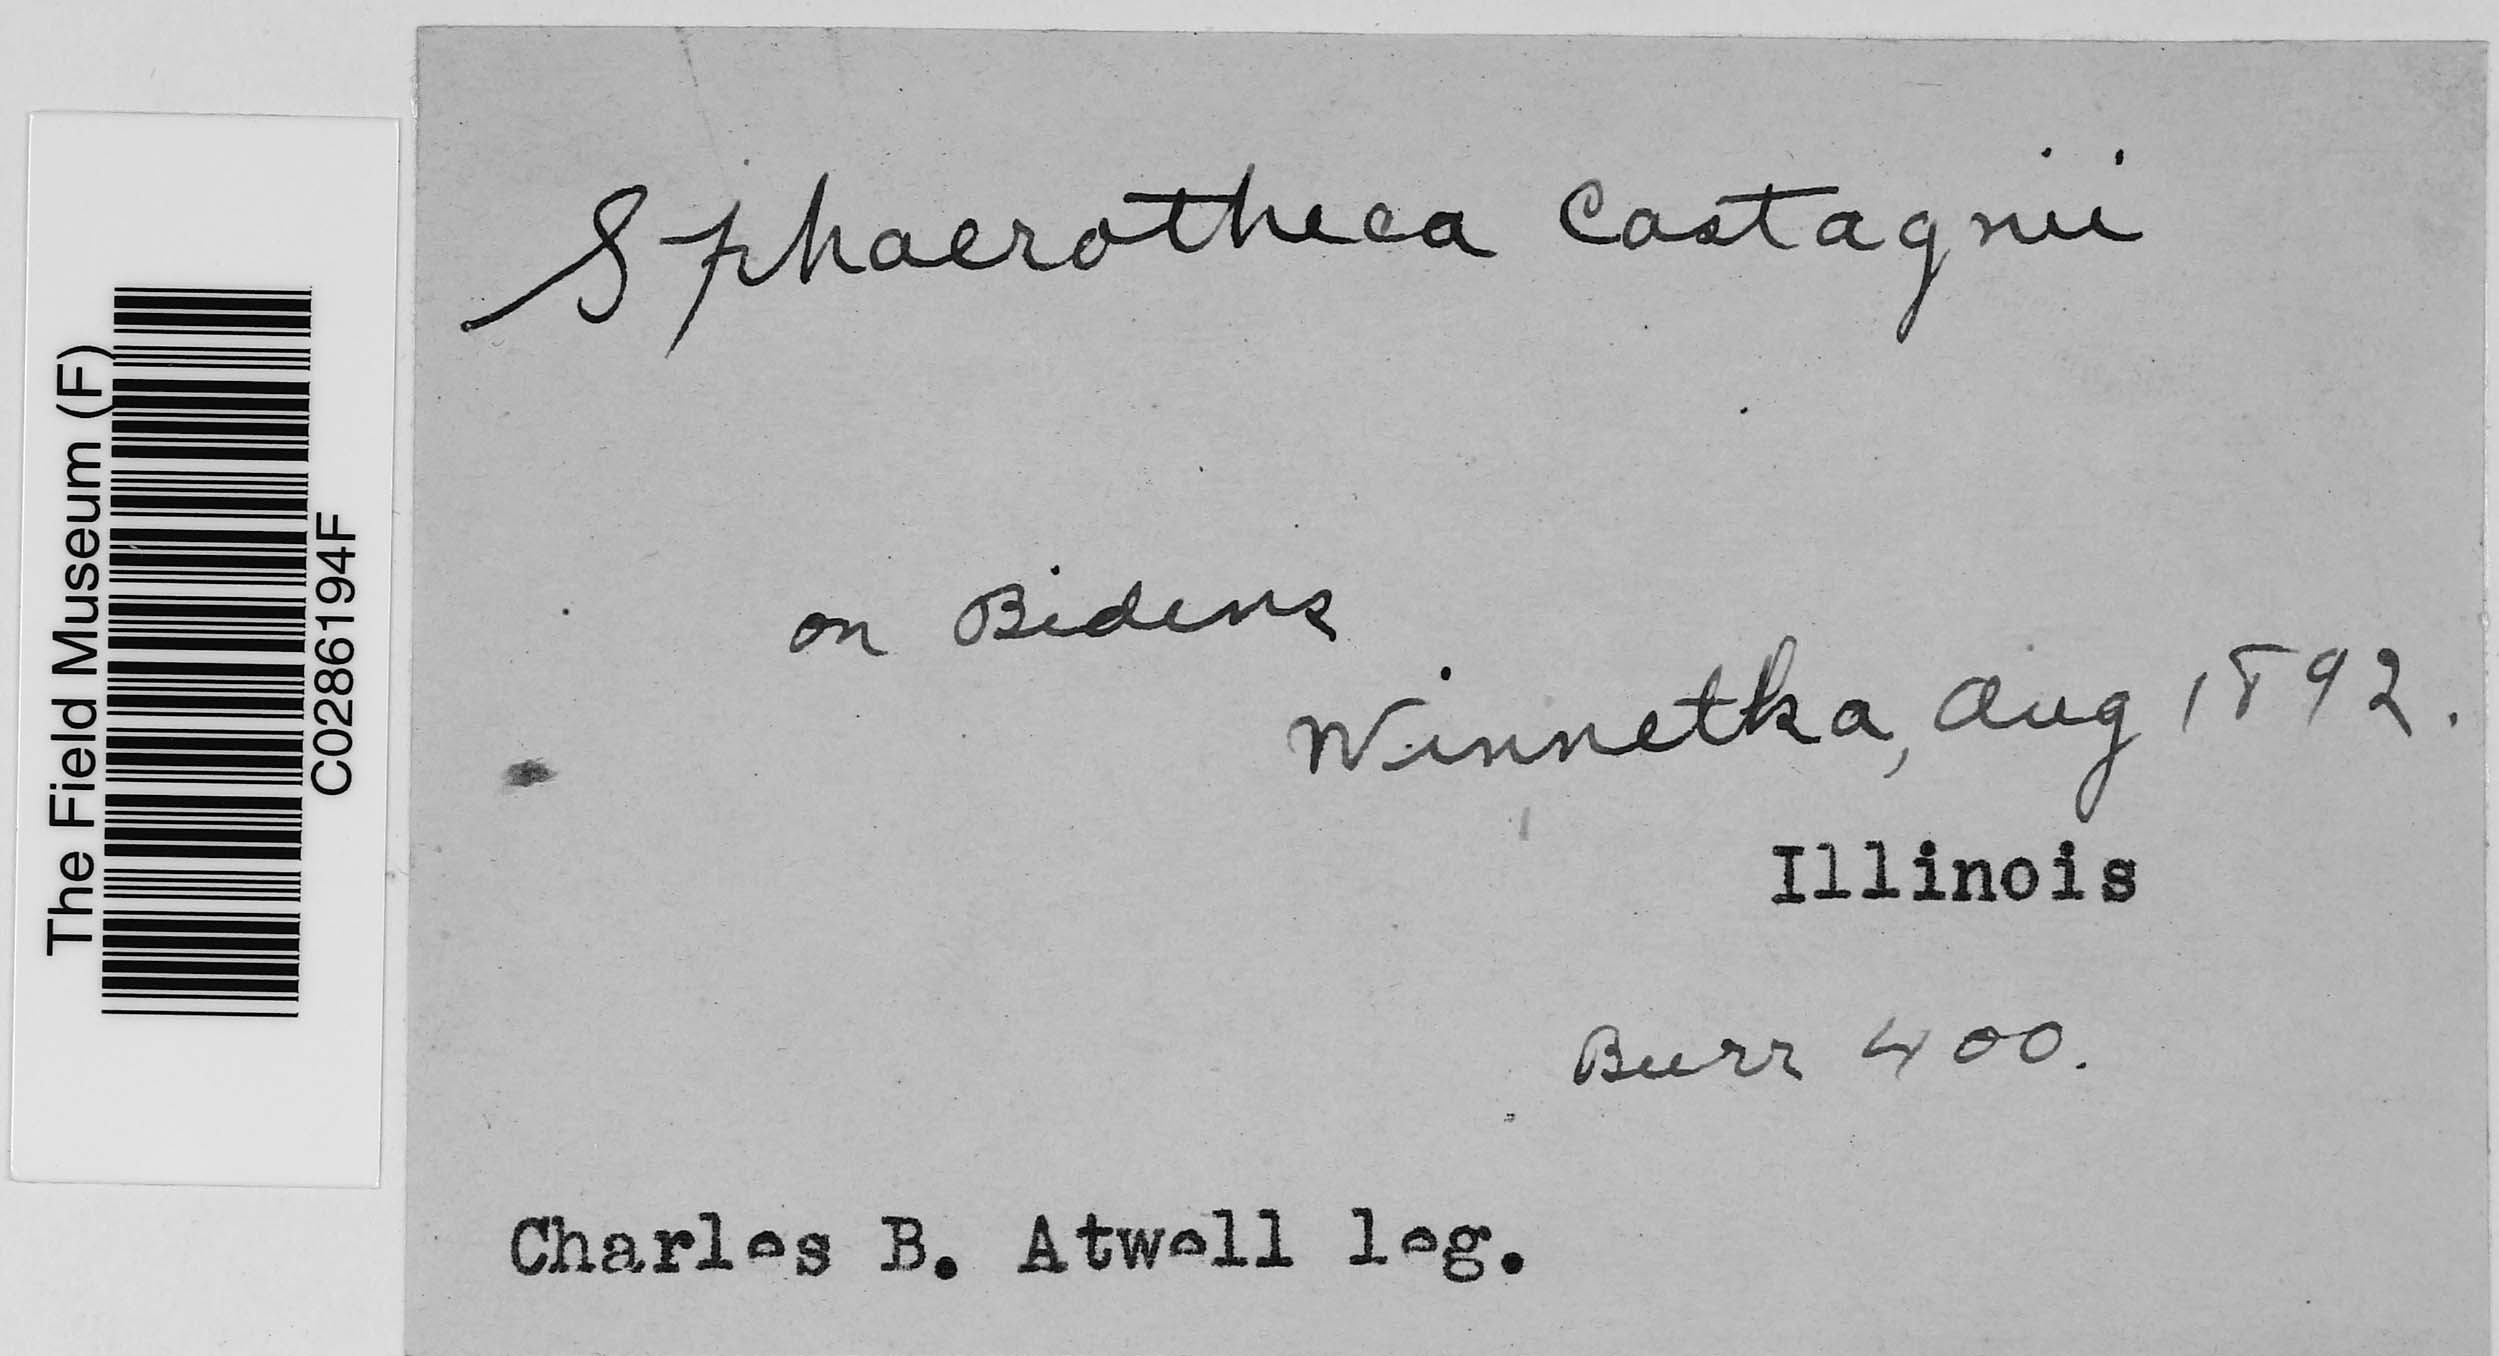 The Field Museum (F)
C0286194F
Sphaerotheca Castagnii
on Bidens
Winnetka, Aug 1892.
Illinois
Burr 400.
Charles B. Atwell leg.